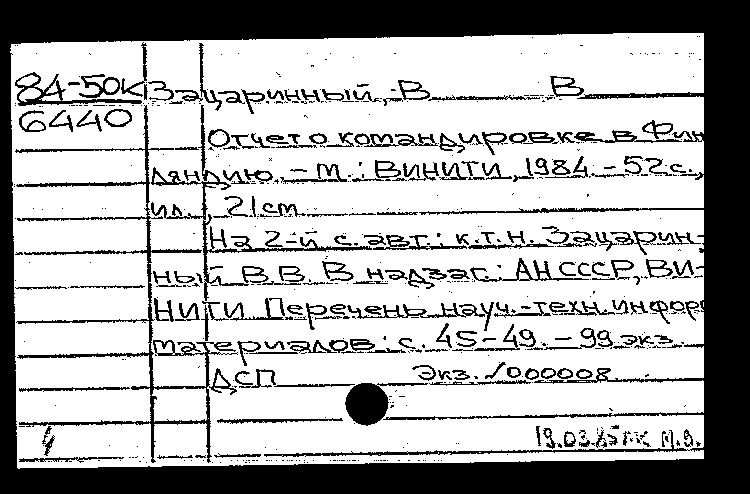 84-50К Зацаринный, В В
6440
Отчет о командировке в Фин
ляндию. - М.: ВИНИТИ, 1984. - 52 с.,
ил., 21 cm
На 2-й с. авт.: к.т.н. Зацарин-
ный В.В. В надзаг.: АН СССР, ВИ-
НИТИ Перечень науч.-техн. инфор
материалов: с. 45-49. - 99 экз.
ДСП Экз. √000008
4 19.03.85 М.В.